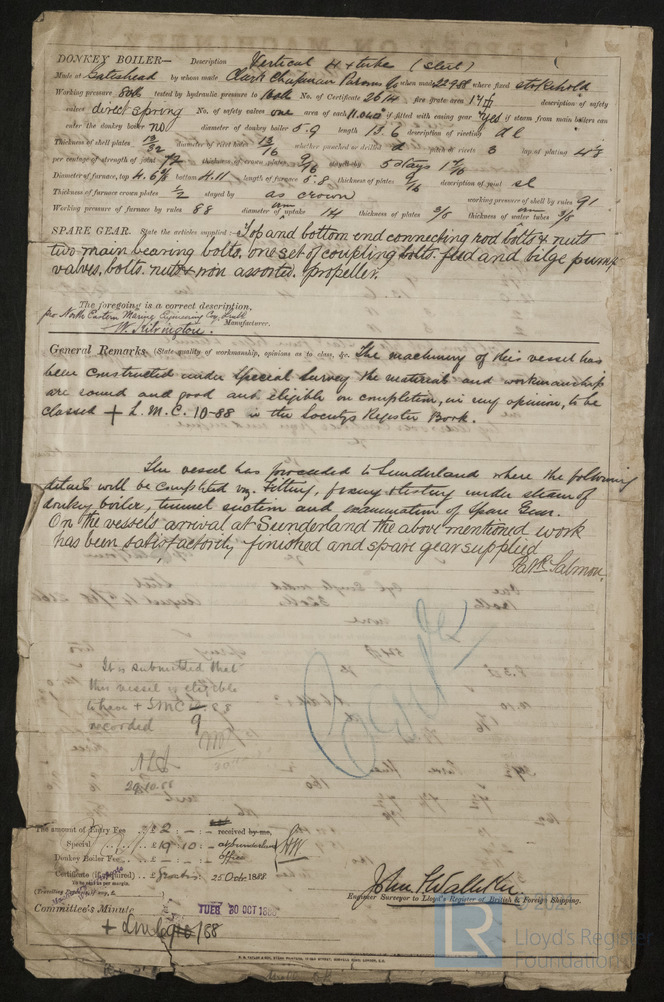 DONKEY BOILER— Description Vertical 4 + tube (Steel)
Made at Gateshead by whom made Clark Chapman Parsons Co when made 22.9.88 where fixed stokehold
Working pressure 80lb tested by hydraulic pressure to 160lb No. of Certificate 2614 fire grate area 17 description of safety
valves direct spring No. of safety valves one area of each 11.04 if fitted with easing gear yes if steam from main boilers can
enter the donkey boiler no diameter of donkey boiler 5.9 length 13.6 description of riveting dl
Thickness of shell plates diameter of rivet holes 13/16 whether punched or drilled pitch of rivets 3 lap of plating
per centage of strength of joint 72 thickness of crown plates 9/16 stayed by 5 stays
Diameter of furnace, top bottom 4.11 length of furnace thickness of plates 9/16 description of joint sl
Thickness of furnace crown plates 1/2 stayed by as crown working pressure of shell by rules 91
Working pressure of furnace by rules 88 diameter of uptake 14 thickness of plates 3/8 thickness of water tubes 3/8
SPARE GEAR. State the articles supplied:— Top and bottom end connecting rod bolts & nuts
two main bearing bolts, one set of coupling bolts. feed and bilge pump
valves, bolts. nuts & iron assorted. propeller.
The foregoing is a correct description,
for North Eastern Marine Engineering Coy, Limd
W. Kilvington. Manufacturer.
General Remarks (State quality of workmanship, opinions as to class, &c. The machinery of this vessel has
been constructed under Special Survey the material and workmanship
are sound and good and eligible on completion, in my opinion, to be
classed + L.M.C. 10-88 in the Societys Register Book.
The vessel has proceeded to Sunderland where the following
details will be completed viz. Fitting, fixing & testing under steam of
donkey boiler, tunnel suction and examination of Spare Gear.
On the vessels arrival at Sunderland the above mentioned work
has been satisfactorily finished and spare gear supplied
Salmon
It is submitted that
this vessel is eligible
to have + LMC 88
recorded 9
29.10.88
The amount of Entry Fee .. £ 2 : – : – received by me,
Special .. £ 19 : 10 : – at Sunderland
Donkey Boiler Fee .. £ – : – : – office
Certificate (if required) .. £ gratis : 25 Octr 1888
To be sent as per margin.
(Travelling Expenses, if any, £
Committee's Minute TUES 30 OCT 1888
Engineer Surveyor to Lloyd's Register of British & Foreign Shipping.
© 2021
LR
Lloyd's Register
Foundation